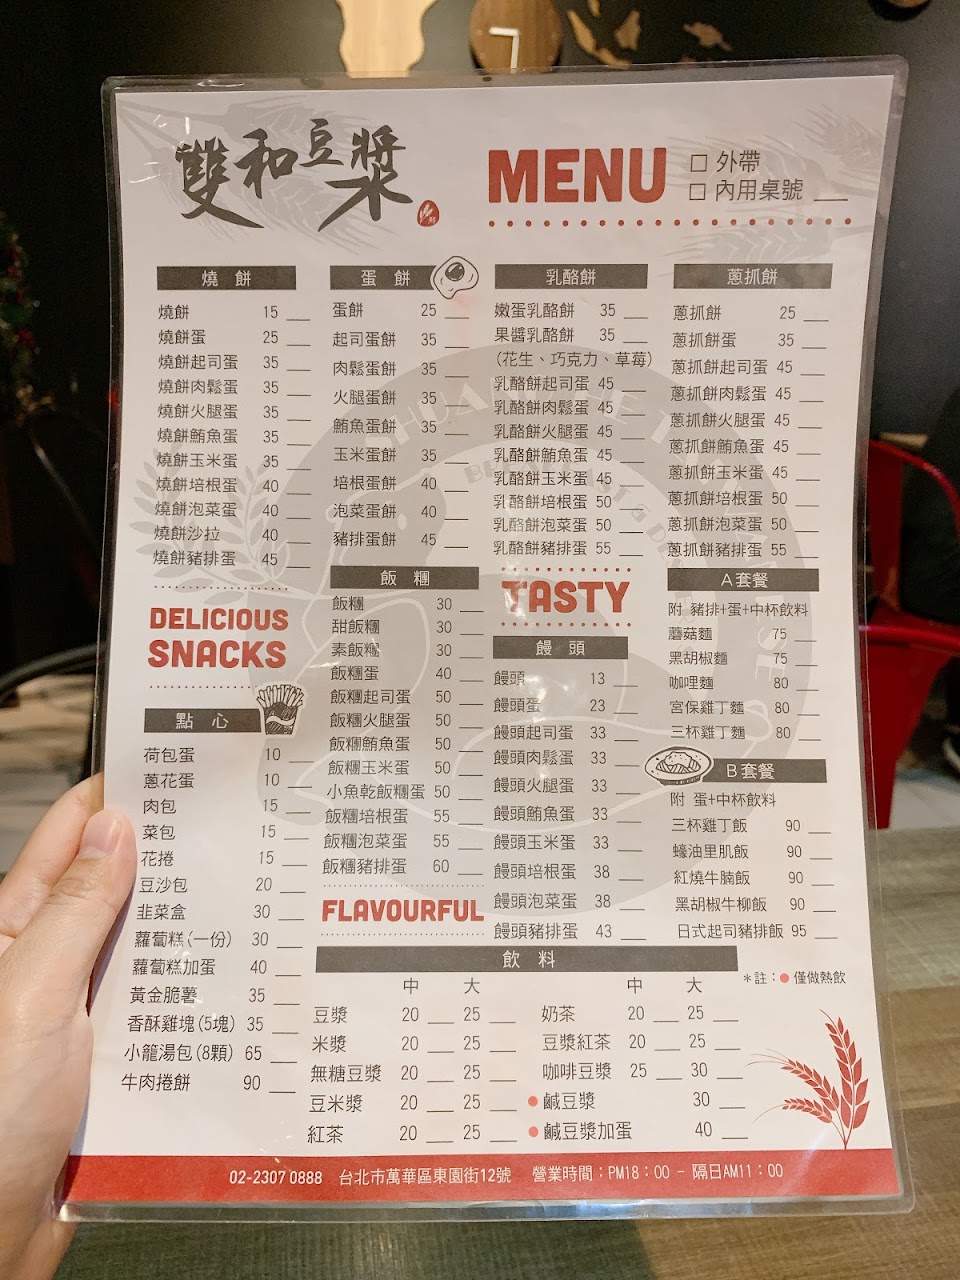 雙和豆漿
MENU
□ 外帶
□ 內用桌號 ___
燒 餅
燒餅 15 ___
燒餅蛋 25 ___
燒餅起司蛋 35 ___
燒餅肉鬆蛋 35 ___
燒餅火腿蛋 35 ___
燒餅鮪魚蛋 35 ___
燒餅玉米蛋 35 ___
燒餅培根蛋 40 ___
燒餅泡菜蛋 40 ___
燒餅沙拉 40 ___
燒餅豬排蛋 45 ___
DELICIOUS
SNACKS
點 心
荷包蛋 10 ___
蔥花蛋 10 ___
肉包 15 ___
菜包 15 ___
花捲 15 ___
豆沙包 20 ___
韭菜盒 30 ___
蘿蔔糕(一份) 30 ___
蘿蔔糕加蛋 40 ___
黃金脆薯 35 ___
香酥雞塊(5塊) 35 ___
小籠湯包(8顆) 65 ___
牛肉捲餅 90 ___
蛋 餅
蛋餅 25 ___
起司蛋餅 35 ___
肉鬆蛋餅 35 ___
火腿蛋餅 35 ___
鮪魚蛋餅 35 ___
玉米蛋餅 35 ___
培根蛋餅 40 ___
泡菜蛋餅 40 ___
豬排蛋餅 45 ___
飯 糰
飯糰 30 ___
甜飯糰 30 ___
素飯糰 30 ___
飯糰蛋 40 ___
飯糰起司蛋 50 ___
飯糰火腿蛋 50 ___
飯糰鮪魚蛋 50 ___
飯糰玉米蛋 50 ___
小魚乾飯糰蛋 50 ___
飯糰培根蛋 55 ___
飯糰泡菜蛋 55 ___
飯糰豬排蛋 60 ___
FLAVOURFUL
乳酪餅
嫩蛋乳酪餅 35 ___
果醬乳酪餅 35 ___
(花生、巧克力、草莓)
乳酪餅起司蛋 45 ___
乳酪餅肉鬆蛋 45 ___
乳酪餅火腿蛋 45 ___
乳酪餅鮪魚蛋 45 ___
乳酪餅玉米蛋 45 ___
乳酪餅培根蛋 50 ___
乳酪餅泡菜蛋 50 ___
乳酪餅豬排蛋 55 ___
TASTY
饅 頭
饅頭 13 ___
饅頭蛋 23 ___
饅頭起司蛋 33 ___
饅頭肉鬆蛋 33 ___
饅頭火腿蛋 33 ___
饅頭鮪魚蛋 33 ___
饅頭玉米蛋 33 ___
饅頭培根蛋 38 ___
饅頭泡菜蛋 38 ___
饅頭豬排蛋 43 ___
蔥抓餅
蔥抓餅 25 ___
蔥抓餅蛋 35 ___
蔥抓餅起司蛋 45 ___
蔥抓餅肉鬆蛋 45 ___
蔥抓餅火腿蛋 45 ___
蔥抓餅鮪魚蛋 45 ___
蔥抓餅玉米蛋 45 ___
蔥抓餅培根蛋 50 ___
蔥抓餅泡菜蛋 50 ___
蔥抓餅豬排蛋 55 ___
A套餐
附 豬排+蛋+中杯飲料
蘑菇麵 75 ___
黑胡椒麵 75 ___
咖哩麵 80 ___
宮保雞丁麵 80 ___
三杯雞丁麵 80 ___
B套餐
附 蛋+中杯飲料
三杯雞丁飯 90 ___
蠔油里肌飯 90 ___
紅燒牛腩飯 90 ___
黑胡椒牛柳飯 90 ___
日式起司豬排飯 95 ___
飲 料
＊註：●僅做熱飲
中 大 中 大
豆漿 20 ___ 25 ___ 奶茶 20 ___ 25 ___
米漿 20 ___ 25 ___ 豆漿紅茶 20 ___ 25 ___
無糖豆漿 20 ___ 25 ___ 咖啡豆漿 25 ___ 30 ___
豆米漿 20 ___ 25 ___ ●鹹豆漿 30 ___
紅茶 20 ___ 25 ___ ●鹹豆漿加蛋 40 ___
02-2307 0888 台北市萬華區東園街12號 營業時間：PM18：00 - 隔日AM11：00